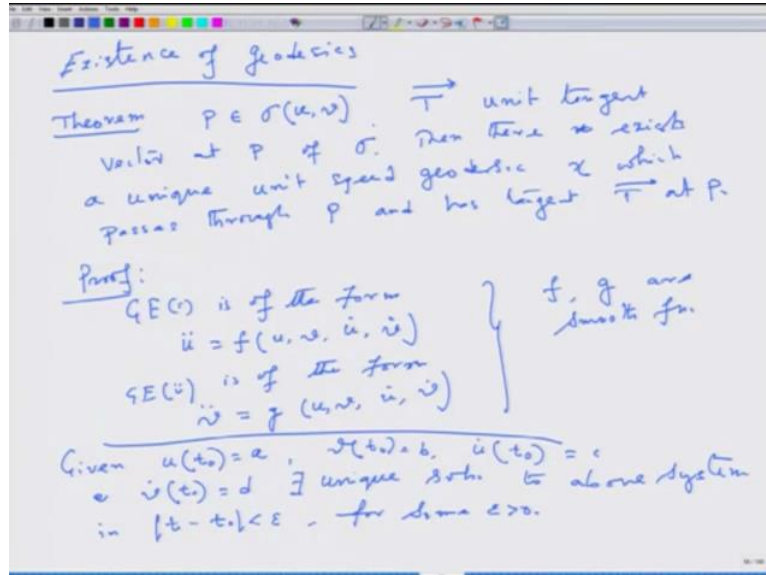 Existence of geodesics
Theorem P ∈ σ(u, v) T⃗ unit tangent
vector at P of σ. Then there exists
a unique unit speed geodesic γ which
passes through P and has tangent T⃗ at P.
Proof:
GE(i) is of the form
ü = f(u, v, u̇, v̇)
GE(ii) is of the form
v̈ = g (u, v, u̇, v̇)
} f, g are
smooth fn.
Given u(t₀) = a, v(t₀) = b, u̇(t₀) = c
& v̇(t₀) = d ∃ unique soln. to above system
in |t - t₀| < ε, for some ε > 0.